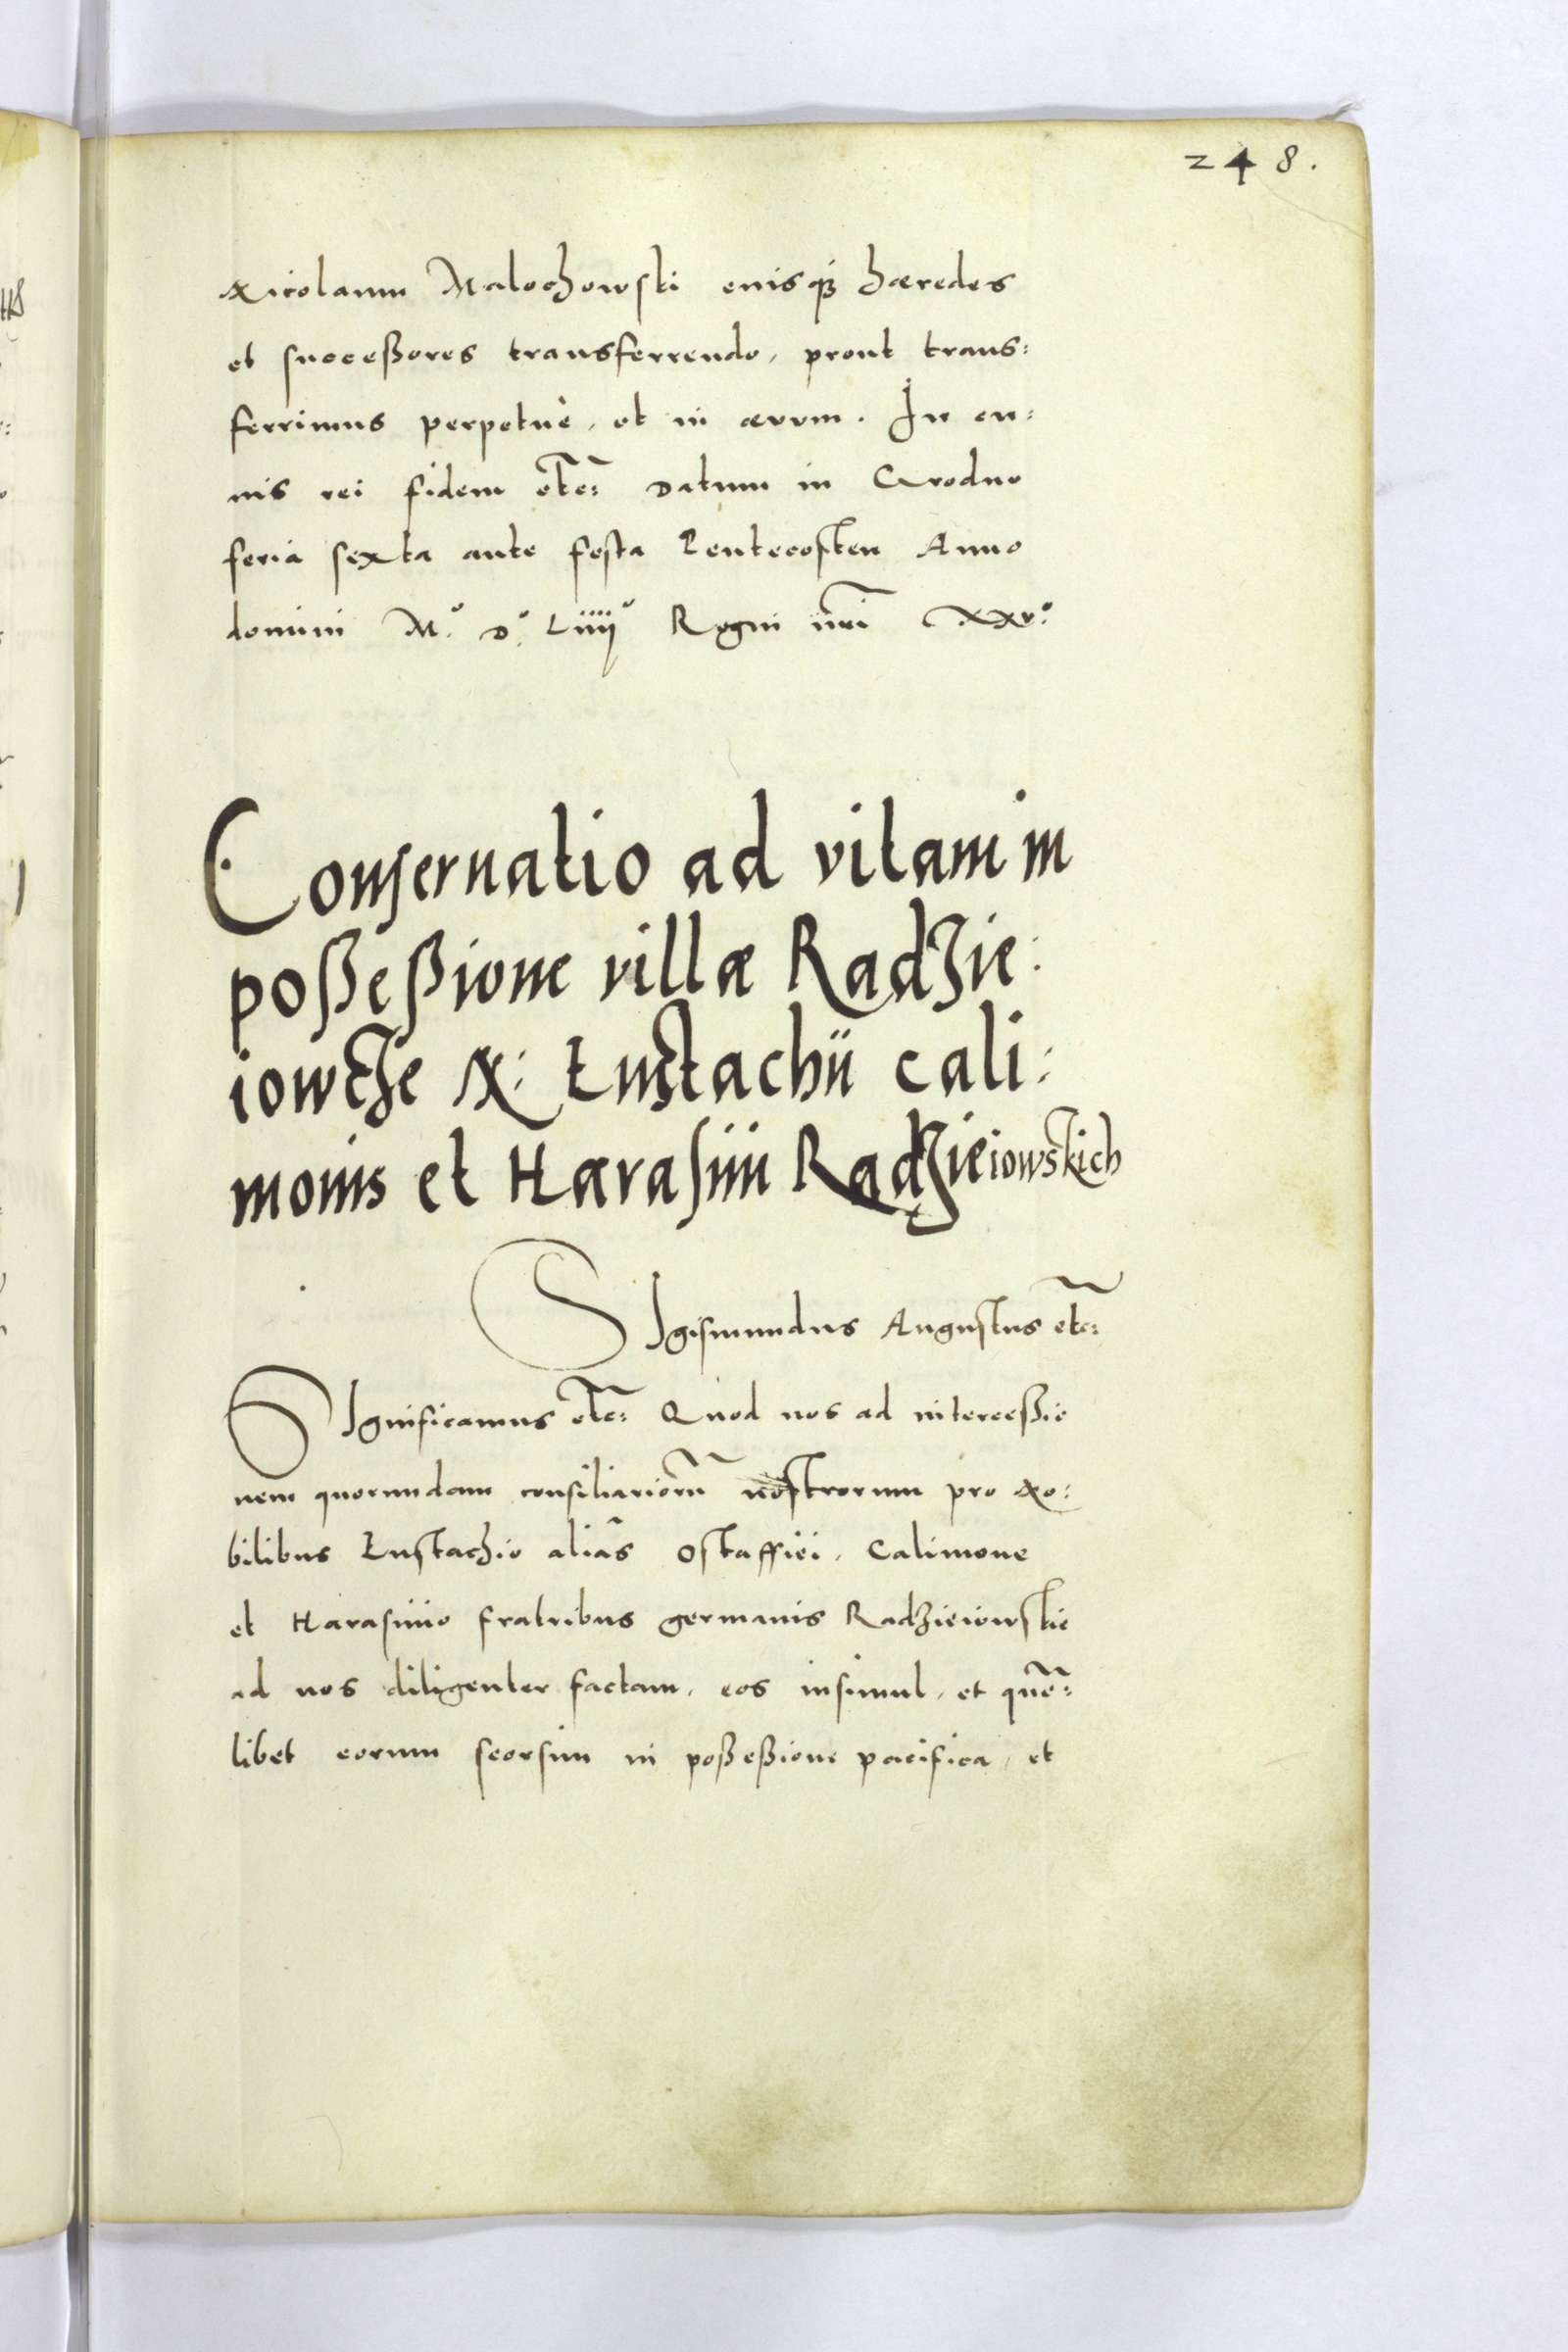 248.
Nicolaum Malochowski euisq3 hæredes
et succeßores transferrendo, prout trans:
ferrimus perpetuè, et in ævvm. In cu:
uis rei fidem etc: Datum in Grodno
feria sexta ante festa Pentecosten Anno
domini M.º D.º Liiijº Regni nr̃i xxv.º
Conseruatio ad vitam in
poßeßione villæ Radzie:
iowcze N: Eustachii Cali:
monis et Harasimi Radzieiowskich
SIgismundus Augustus etc:
SIgnificamus etc: Quod nos ad interceßio
nem quorundam consiliariorũ nostrorum pro No:
bilibus Eustachio aliàs Ostaffiei, Calimone
et Harasimo fratribus germanis Radzieiowskie
ad nos diligenter factam, eos insimul, et quẽ:
libet eorum seorsim in poßeßione pacifica, et